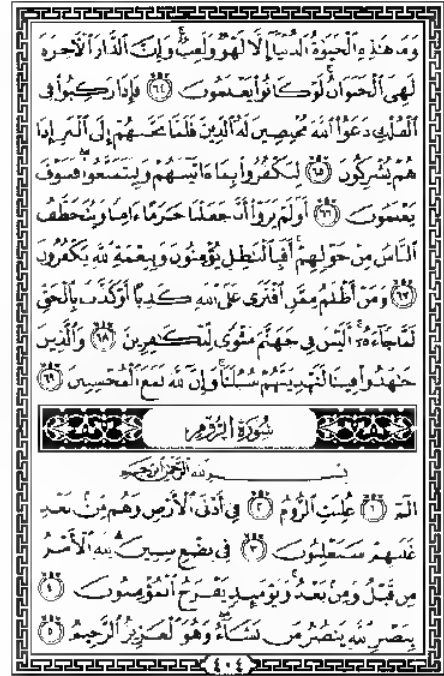 وَمَا هَٰذِهِ ٱلْحَيَوٰةُ ٱلدُّنْيَآ إِلَّا لَهْوٌ وَلَعِبٌ ۚ وَإِنَّ ٱلدَّارَ ٱلْءَاخِرَةَ
لَهِىَ ٱلْحَيَوَانُ ۚ لَوْ كَانُوا۟ يَعْلَمُونَ ٦٤ فَإِذَا رَكِبُوا۟ فِى
ٱلْفُلْكِ دَعَوُا۟ ٱللَّهَ مُخْلِصِينَ لَهُ ٱلدِّينَ فَلَمَّا نَجَّىٰهُمْ إِلَى ٱلْبَرِّ إِذَا
هُمْ يُشْرِكُونَ ٦٥ لِيَكْفُرُوا۟ بِمَآ ءَاتَيْنَٰهُمْ وَلِيَتَمَتَّعُوا۟ ۖ فَسَوْفَ
يَعْلَمُونَ ٦٦ أَوَلَمْ يَرَوْا۟ أَنَّا جَعَلْنَا حَرَمًا ءَامِنًا وَيُتَخَطَّفُ
ٱلنَّاسُ مِنْ حَوْلِهِمْ ۚ أَفَبِٱلْبَٰطِلِ يُؤْمِنُونَ وَبِنِعْمَةِ ٱللَّهِ يَكْفُرُونَ
٦٧ وَمَنْ أَظْلَمُ مِمَّنِ ٱفْتَرَىٰ عَلَى ٱللَّهِ كَذِبًا أَوْ كَذَّبَ بِٱلْحَقِّ
لَمَّا جَآءَهُۥٓ ۚ أَلَيْسَ فِى جَهَنَّمَ مَثْوًى لِّلْكَٰفِرِينَ ٦٨ وَٱلَّذِينَ
جَٰهَدُوا۟ فِينَا لَنَهْدِيَنَّهُمْ سُبُلَنَا ۚ وَإِنَّ ٱللَّهَ لَمَعَ ٱلْمُحْسِنِينَ ٦٩
سُورَةُ ٱلرُّومِ
بِسْمِ ٱللَّهِ ٱلرَّحْمَٰنِ ٱلرَّحِيمِ
الٓمٓ ١ غُلِبَتِ ٱلرُّومُ ٢ فِىٓ أَدْنَى ٱلْأَرْضِ وَهُم مِّنۢ بَعْدِ
غَلَبِهِمْ سَيَغْلِبُونَ ٣ فِى بِضْعِ سِنِينَ ۗ لِلَّهِ ٱلْأَمْرُ
مِن قَبْلُ وَمِنۢ بَعْدُ ۚ وَيَوْمَئِذٍ يَفْرَحُ ٱلْمُؤْمِنُونَ ٤
بِنَصْرِ ٱللَّهِ ۚ يَنصُرُ مَن يَشَآءُ ۖ وَهُوَ ٱلْعَزِيزُ ٱلرَّحِيمُ ٥
٤٠٤